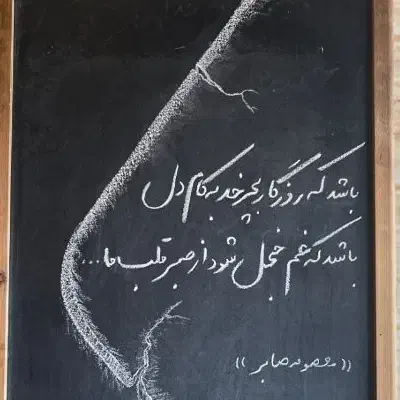 باشد که روزگار بچرخد به کام دل
باشد که غم خجل شود از صبر قلب ما...
((معصومه صابر))